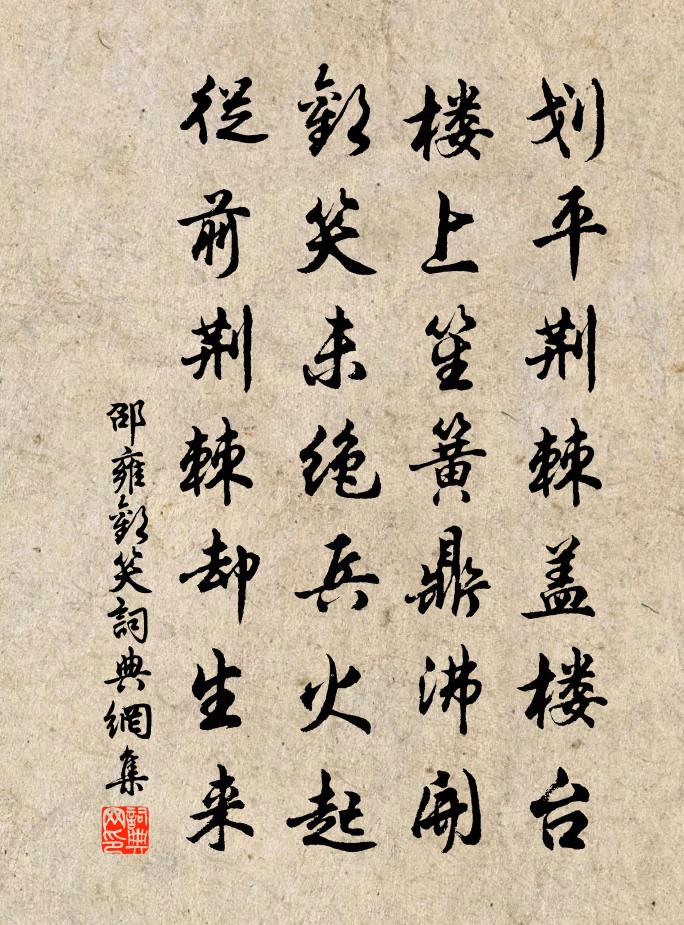 划平荆棘盖楼台
楼上笙簧鼎沸开
歡笑未绝兵火起
從前荆棘却生来
邵雍歡笑詞典網集
詞典
网印